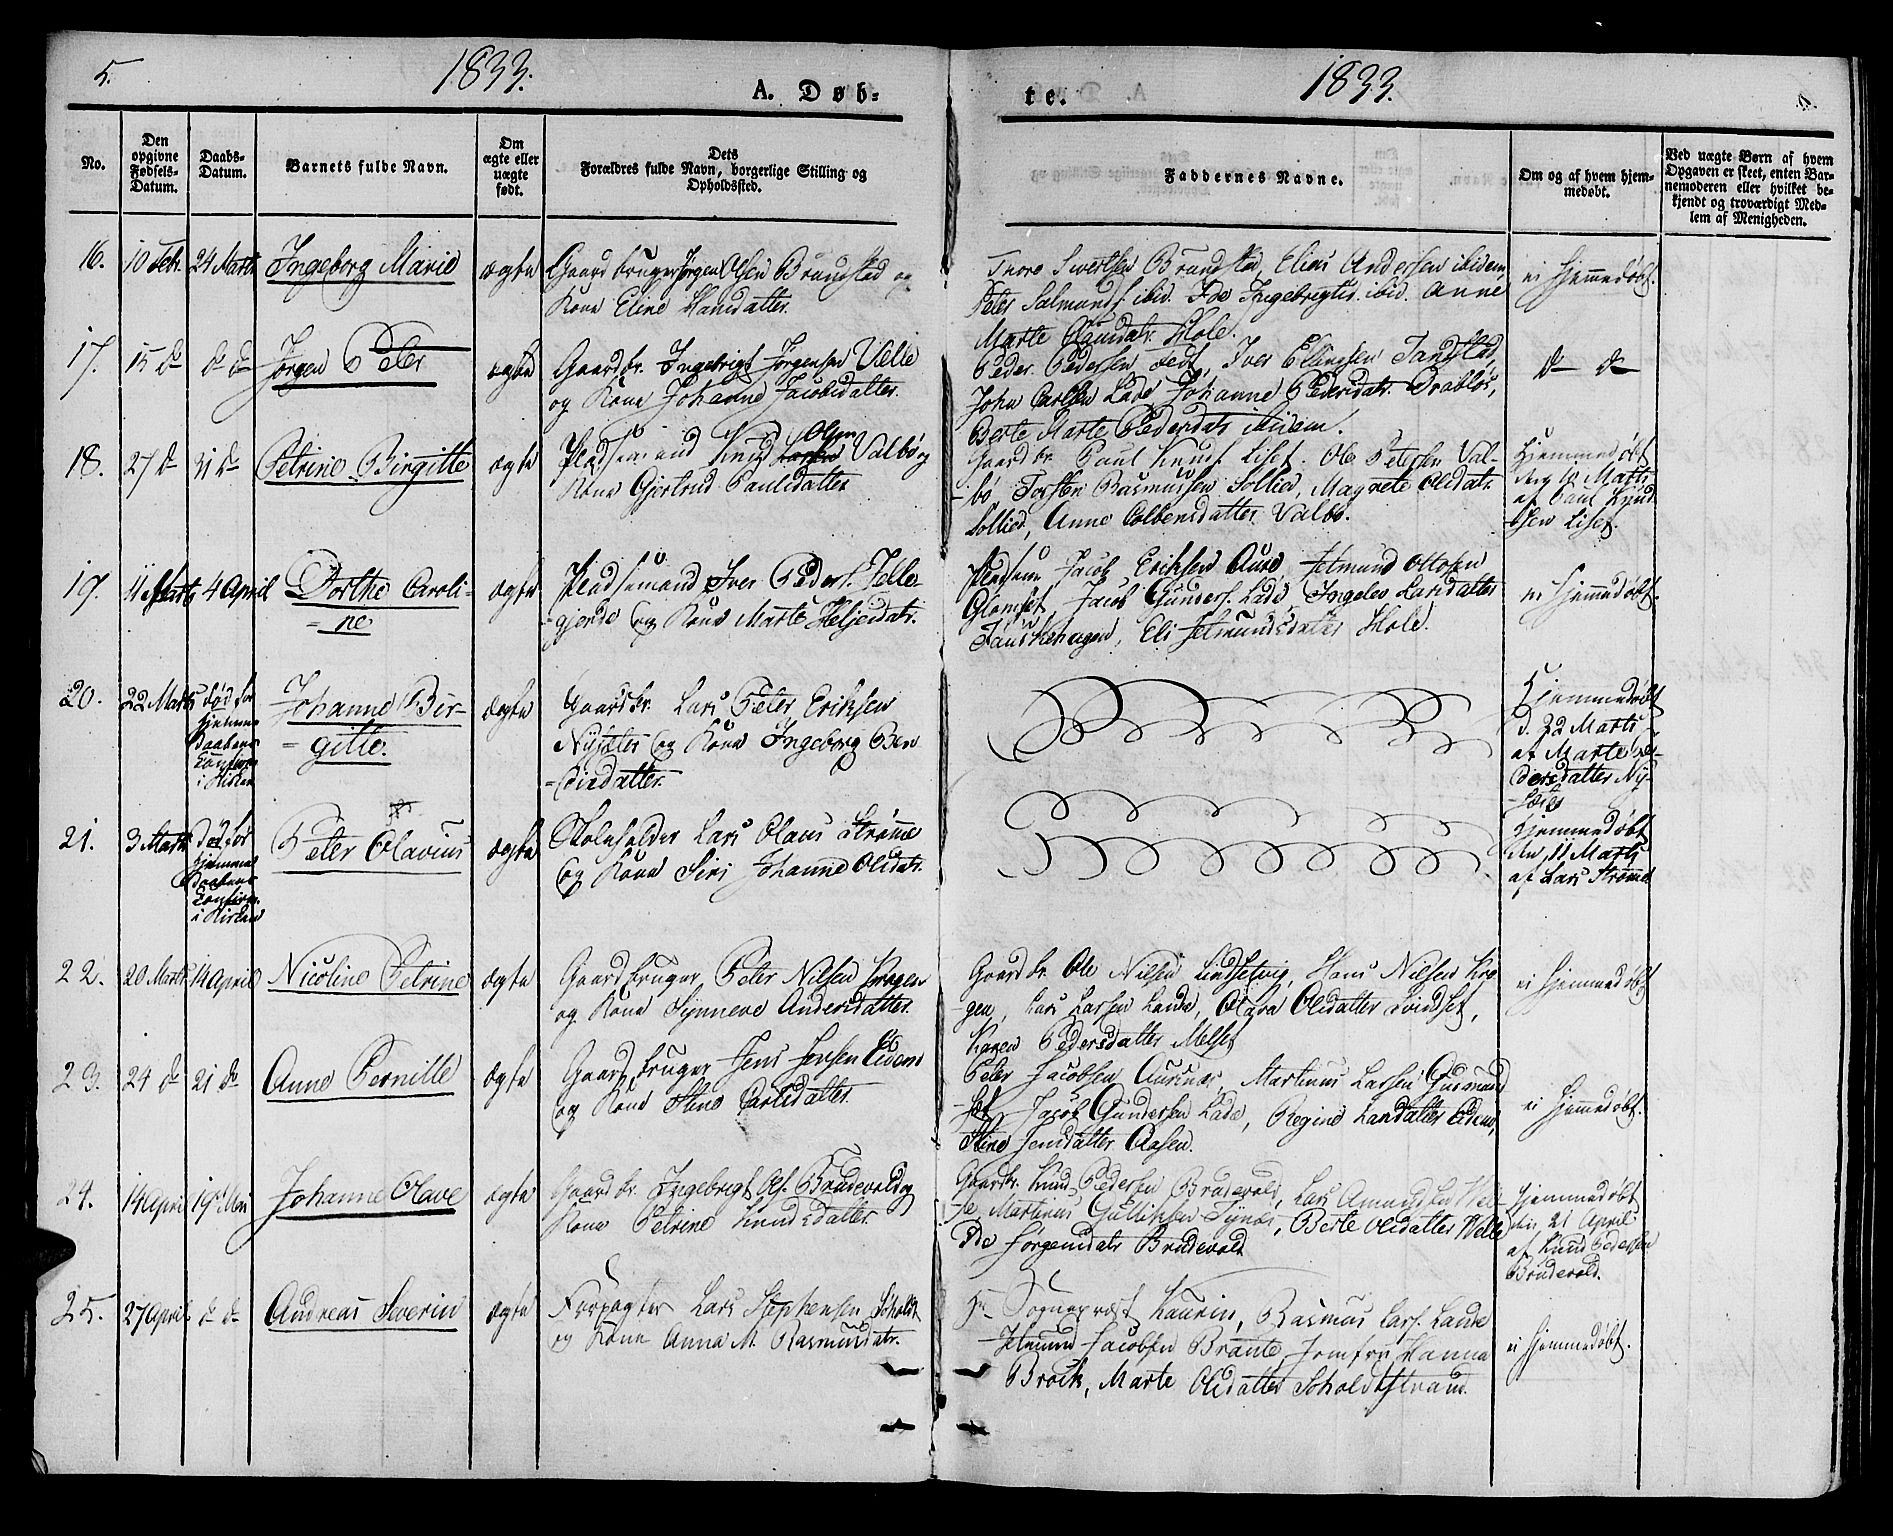 5.
1833.
A. Døb-
te.
1833.
No.
Den opgivne Fødsels-Datum.
Daabs-Datum.
Barnets fulde Navn.
Om ægte eller uægte født.
Dets Forældres fulde Navn, borgerlige Stilling og Opholdssted.
Faddernes Navne.
Om og af hvem hjem-medøbt.
Ved uægte Børn af hvem Opgaven er skeet, enten Bar-nemoderen eller hvilket be-kjendt og troværdigt Med-lem af Menigheden.
16. 10 Febr. 24 Marts Ingeborg Marie ægte
Gaardbruger Jørgen Olsen Brundstad og
Kone Eline Hansdatter.
Tore Sivertsen Brundstad, Elias Andersen ibidem,
Peter Salmunds. ibid. Ide Ingebrigtsd. ibid. Anne
Marte Hole.
ei hjemmedøbt.
17. 15 d 
 d d Jørgen Peter ægte
Gaardbr. Ingebrigt Jørgensen Velle
og Kone Johanne Jacobsdatter.
Peder Pedersen Iver Ellingsen Tandstad,
John Carlsen Lade Johanne Pedersdatr. Drabløs,
Berte Marte Pedersdatr ibidem.
d d
18. 27 d 31 d Petrine Birgitte ægte
Pladsemand Knud Olsen Valbø og
Kone Gjertrud Paulsdatter
Gaardbr. Paul Knuds. Liset. Ole Petersen Val-
-bø, Torsten Rasmussen Sollied, Magnete Olsdatr.
Sollied, Anne Colbensdatter Valbø.
Hjemmedøbt
den 12 Marts
af Paul Knud-
-sen Liset.
19. 11 Marts 4 April Dorthe Caroli-
-ne ægte
Pladsemand Iver Peders. Telle-
-gjerde og Kone Marte Heljesdatr.
Pladsem Jacob Eriksen Aure Jetmund Ottosen
Glomset, Jacob Gunders. Lade, Ingelev Larsdatter
Fauskehagen, Eli Jetmundsdatter Hole.
ei hjemmedøbt.
20. 22 Marts død før
hjemme-
Daabens
Confirm.
i Kirken Johanne Bir-
-gitte. ægte
Gaardbr. Lars Peter Eriksen
Nysæter og Kone Ingeborg Ben-
-disdatter.
Hjemmedøbt
d. 22 Marts
af Marte Pe-
dersdatter Ny-
-sæter
21. 3 Marts Død før
hjemme
Daabens
Confirm.
i Kirken Peter Olavius ægte
Skoleholder Lars Olaus Strømme
og Kone Siri Johanne Olsdatr.
Hjemmedøbt
den 11 Marts
af Lars Strømme
22. 20 Marts 14 April Nicoline Petrine ægte
Gaardbruger Peter Nilsen Krogen
og Kone Synneve Andersdatter.
Gaardbr. Ole Nilsen Hans Nilsen Kro-
-gen, Lars Larsen Lande, Olava Olsdatter Svindset,
Karen Pedersdatter Melset
ei hjemmedøbt
23. 24 d 21 d Anne Pernille ægte
Gaardbruger Jens Jensen Eidem
og Kone Stine Carlsdatter.
Peter Jacobsen Aursnes, Martinus Larsen Gudmund-
-set Jacob Gundersen Lade, Regine Larsdatter Eidem,
Stine Jensdatter Aasen.
ei hjemmedøbt.
24. 14 April 19 Mai Johanne Olave ægte
Gaardbr. Ingebrigt Ols. Brudevold og
Kone Petrine Knudsdatter.
Gaardbr. Knud Pedersen Brudevold, Lars Amundsen Vel-
-le, Martinus Gulliksen Synes, Berte Olsdatter Welle
Ide Jørgensdatr Brudevold
Hjemmedøbt
den 21 April
af Knud Pedersen
Brudevold.
25. 27 April d d Andreas Severin ægte
Forpagter Lars Stephensen Søholdt
og Kone Anna M. Rasmusdatr.
Hr. Sogneprest Laurin, Rasmus Lars. Lande
Jetmund Jacobsen Braute, Jomfru Hanna
Brock, Marte Olsdatter Søholdtstrand.
ei hjemmedøbt.